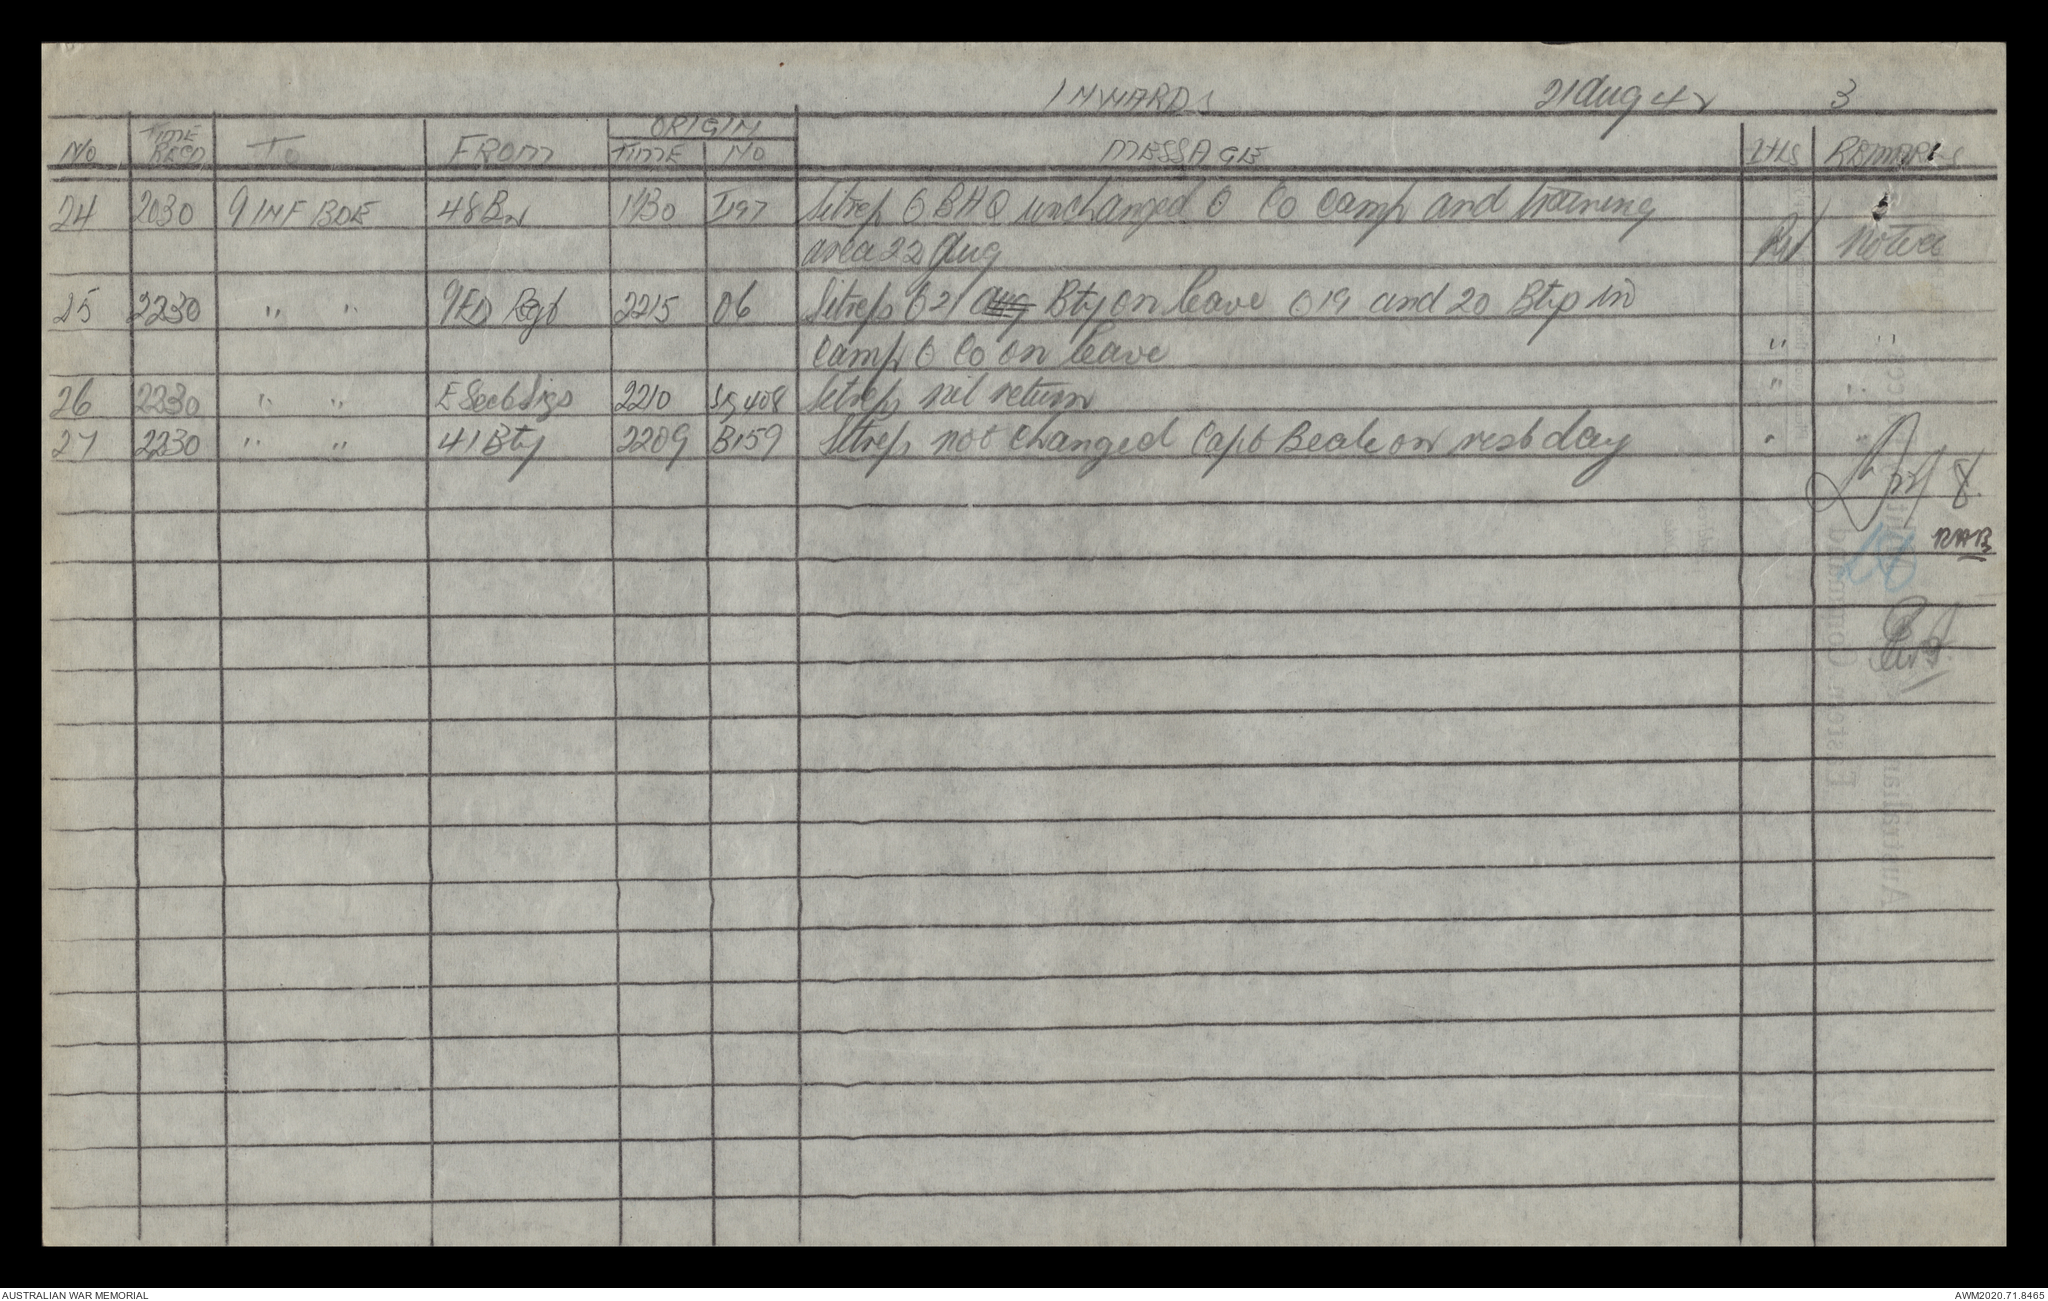 INWARDS 21 Aug 42 3
ORIGIN
No TIME RECD To FROM TIME No MESSAGE IHLS REMARKS
24 2030 9 INF BDE 48 Bn 1930 I197 Sitrep O BHQ unchanged O Co Camp and training
area 22 Aug Noted
25 2230 " " 9 FD Regt 2215 O6 Sitrep O 21 Aug Bty on leave O 19 and 20 Btys in
Camp O Co on leave " "
26 2230 " " E Sect Sigs 2210 Sg 408 Sitrep nil return " "
27 2230 " " 41 Bty 2209 B159 Sitrep not changed Capt Beale on rest day " "
22/8
RAB
Eastern Command
Australian
AUSTRALIAN WAR MEMORIAL AWM2020.71.8465